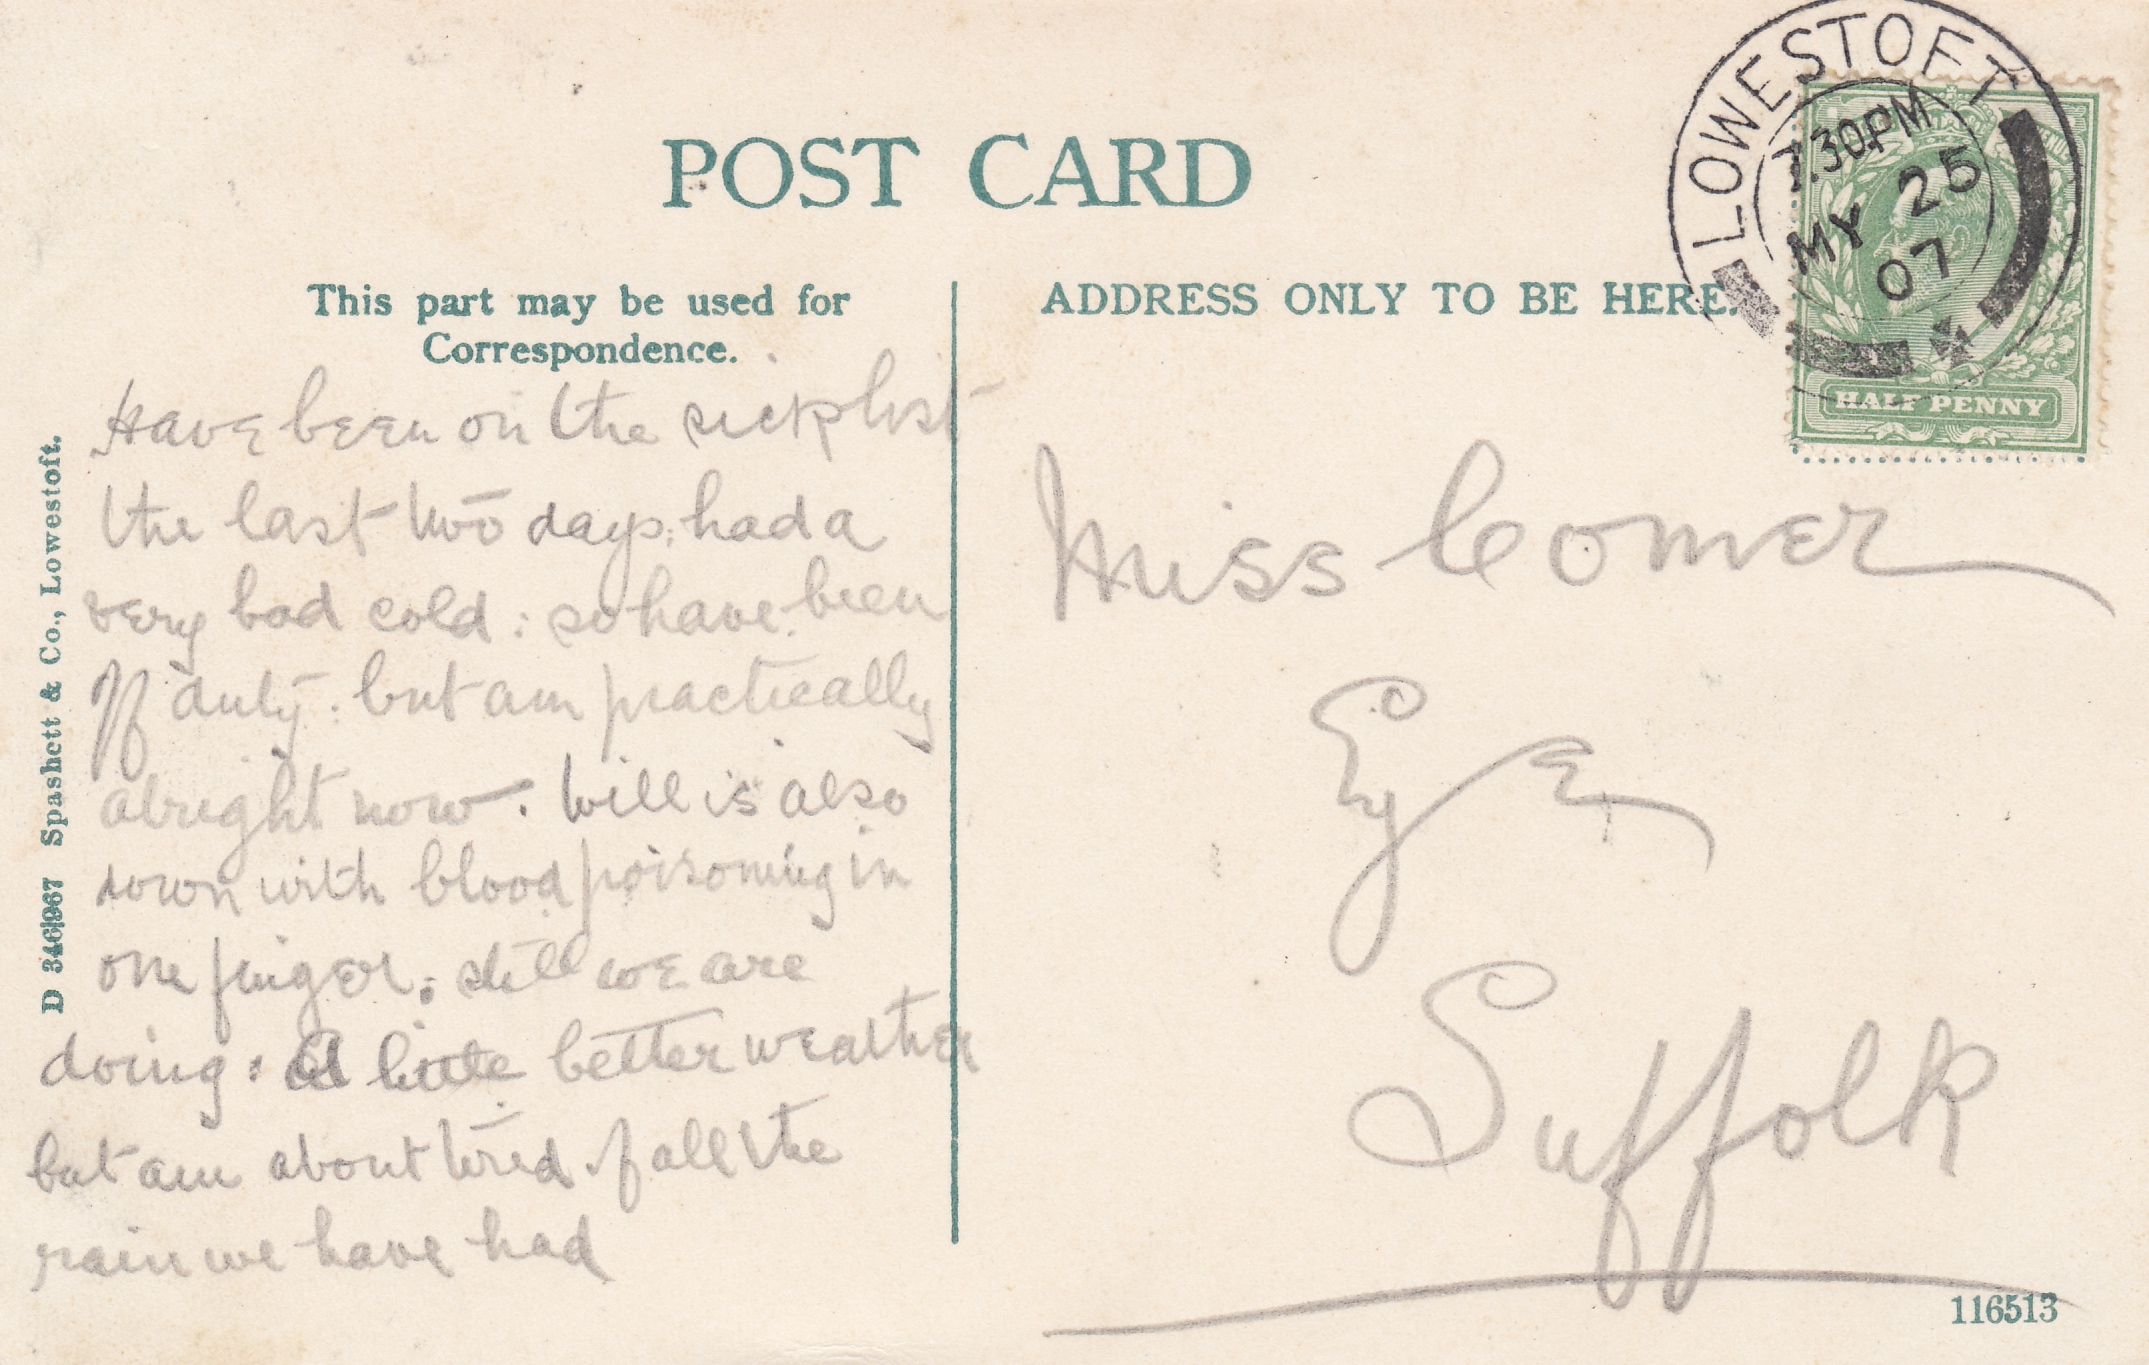 POST CARD
This part may be used for
Correspondence.
ADDRESS ONLY TO BE HERE.
LOWESTOFT
7.30PM
MY 25
07
HALF PENNY
Have been on the sick list
the last two days; had a
very bad cold: so have been
off duty. but am practically
alright now. Will is also
down with blood poisoning in
one finger; still we are
doing: a little better weather
but am about tired of all the
rain we have had
Miss Comer
Eye
Suffolk
D 346967 Spashett & Co., Lowestoft.
116513